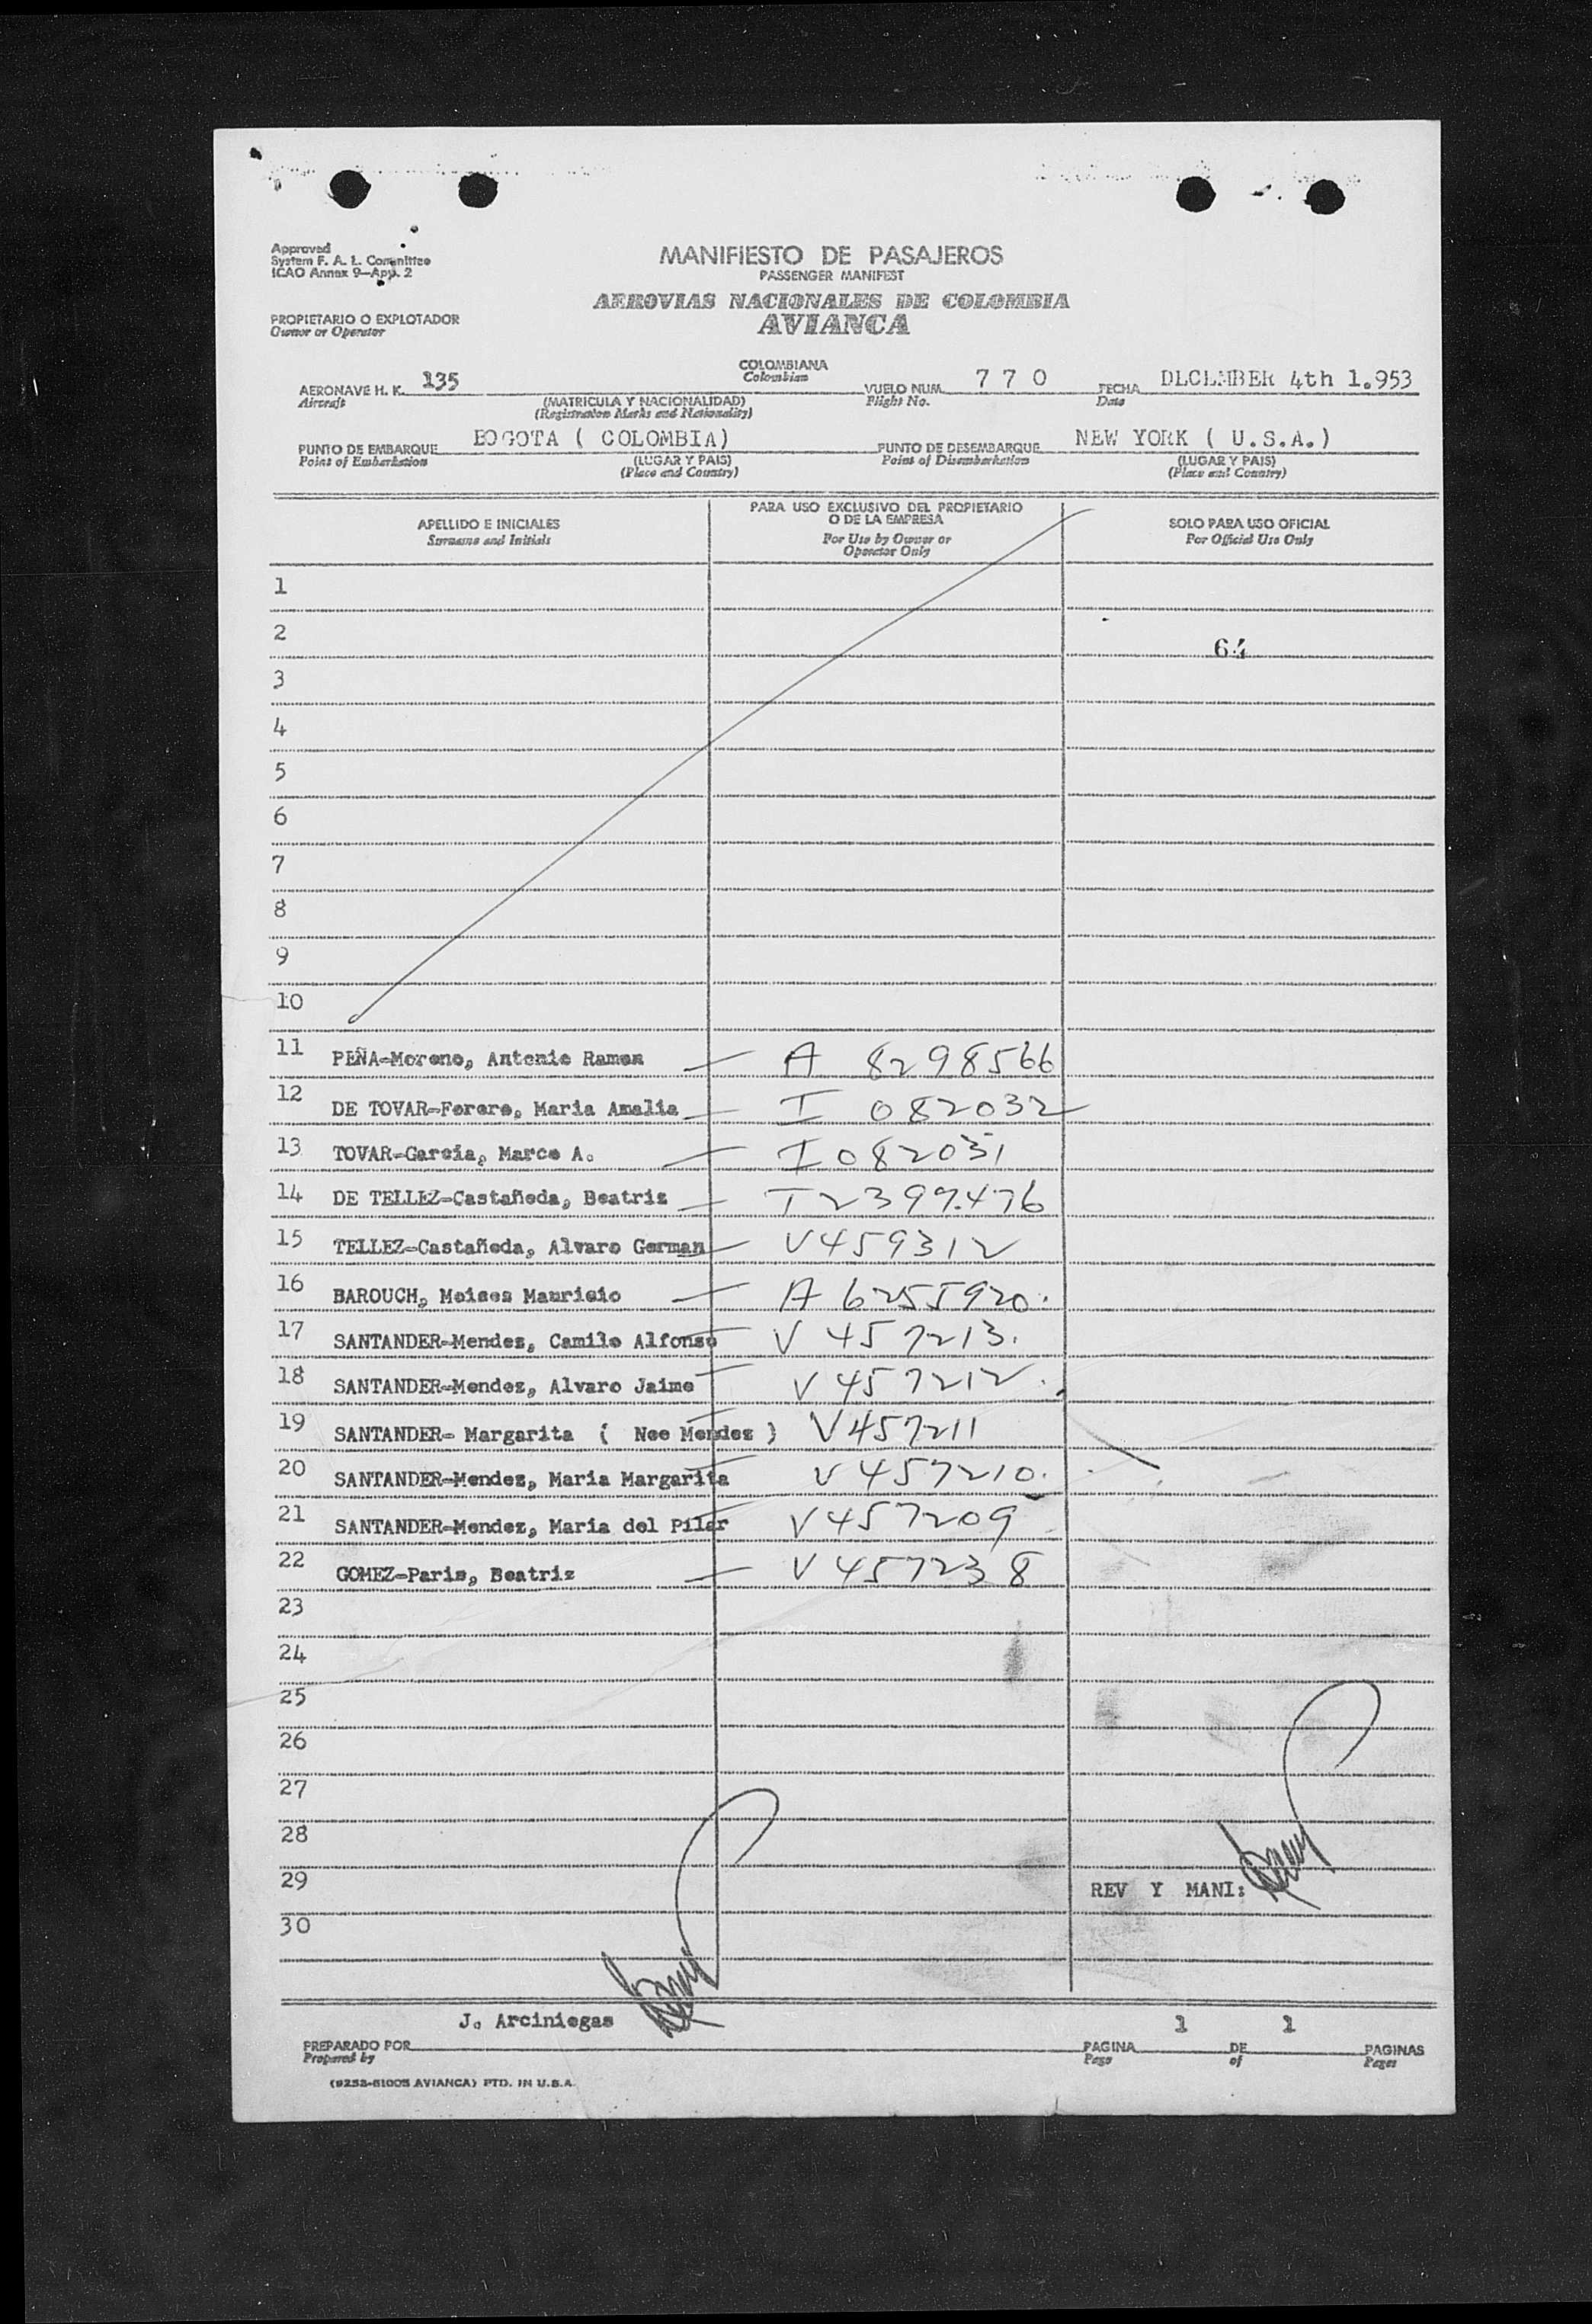 Approved
System F. A. L. Committee
ICAO Annex 9—App. 2
MANIFIESTO DE PASAJEROS
PASSENGER MANIFEST
AEROVIAS NACIONALES DE COLOMBIA
AVIANCA
PROPIETARIO O EXPLOTADOR
Owner or Operator
AERONAVE H. K. 135 COLOMBIANA VUELO NUM. 7 7 0 FECHA DECEMBER 4th 1.953
Aircraft Colombian Flight No. Date
(MATRICULA Y NACIONALIDAD)
(Registration Marks and Nationality)
PUNTO DE EMBARQUE BOGOTA ( COLOMBIA) PUNTO DE DESEMBARQUE NEW YORK ( U.S.A.)
Point of Embarkation (LUGAR Y PAIS) Point of Disembarkation (LUGAR Y PAIS)
(Place and Country) (Place and Country)
APELLIDO E INICIALES
Surname and Initials
PARA USO EXCLUSIVO DEL PROPIETARIO
O DE LA EMPRESA
For Use by Owner or
Operator Only
SOLO PARA USO OFICIAL
For Official Use Only
1
2 64
3
4
5
6
7
8
9
10
11 PEÑA-Moreno, Antonio Ramon — A 8298566
12 DE TOVAR-Forero, Maria Amalia — I 082032
13 TOVAR-Garcia, Marco A. — I 082031
14 DE TELLEZ-Castañeda, Beatriz — T2397.476
15 TELLEZ-Castañeda, Alvaro German — V459312
16 BAROUCH, Moises Mauricio — A 6255920.
17 SANTANDER-Mendez, Camilo Alfonso — V 457213.
18 SANTANDER-Mendez, Alvaro Jaime — V 457212.
19 SANTANDER- Margarita ( Nee Mendez ) V457211
20 SANTANDER-Mendez, Maria Margarita V 457210.
21 SANTANDER-Mendez, Maria del Pilar V457209
22 GOMEZ-Paris, Beatriz — V 457238
23
24
25
26
27
28
29 REV Y MANI:
30
J. Arciniegas 1 1
PREPARADO POR PAGINA DE PAGINAS
Prepared by Page of Pages
(9253-61005 AVIANCA) PTD. IN U.S.A.